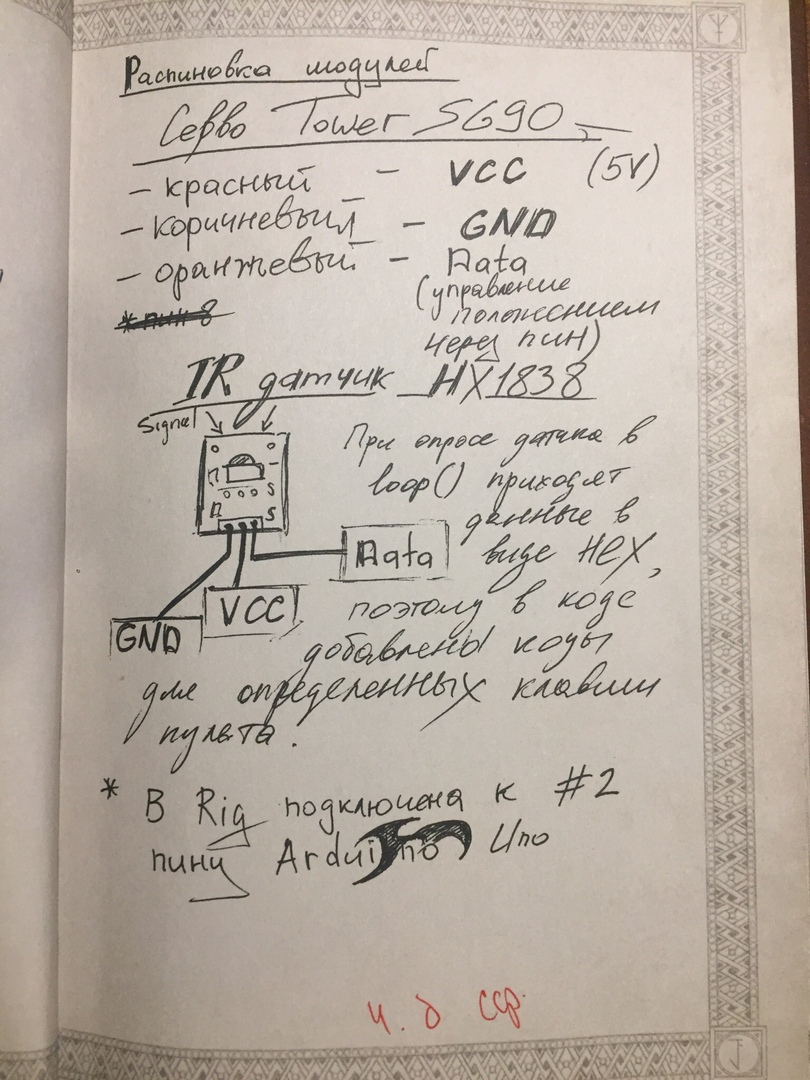 Распиновка модулей
Серво Tower SG90
– красный – VCC (5V)
– коричневый – GND
– оранжевый – Data
(управление
положением
через пин)
* пин 8
IR датчик HX1838
Signal
При опросе датчика в
loop() приходят
данные в
виде HEX,
Data
VCC
GND
поэтому в коде
добавлены коды
для определенных клавиш
пульта.
* В Rig подключена к #2
пину Arduino Uno